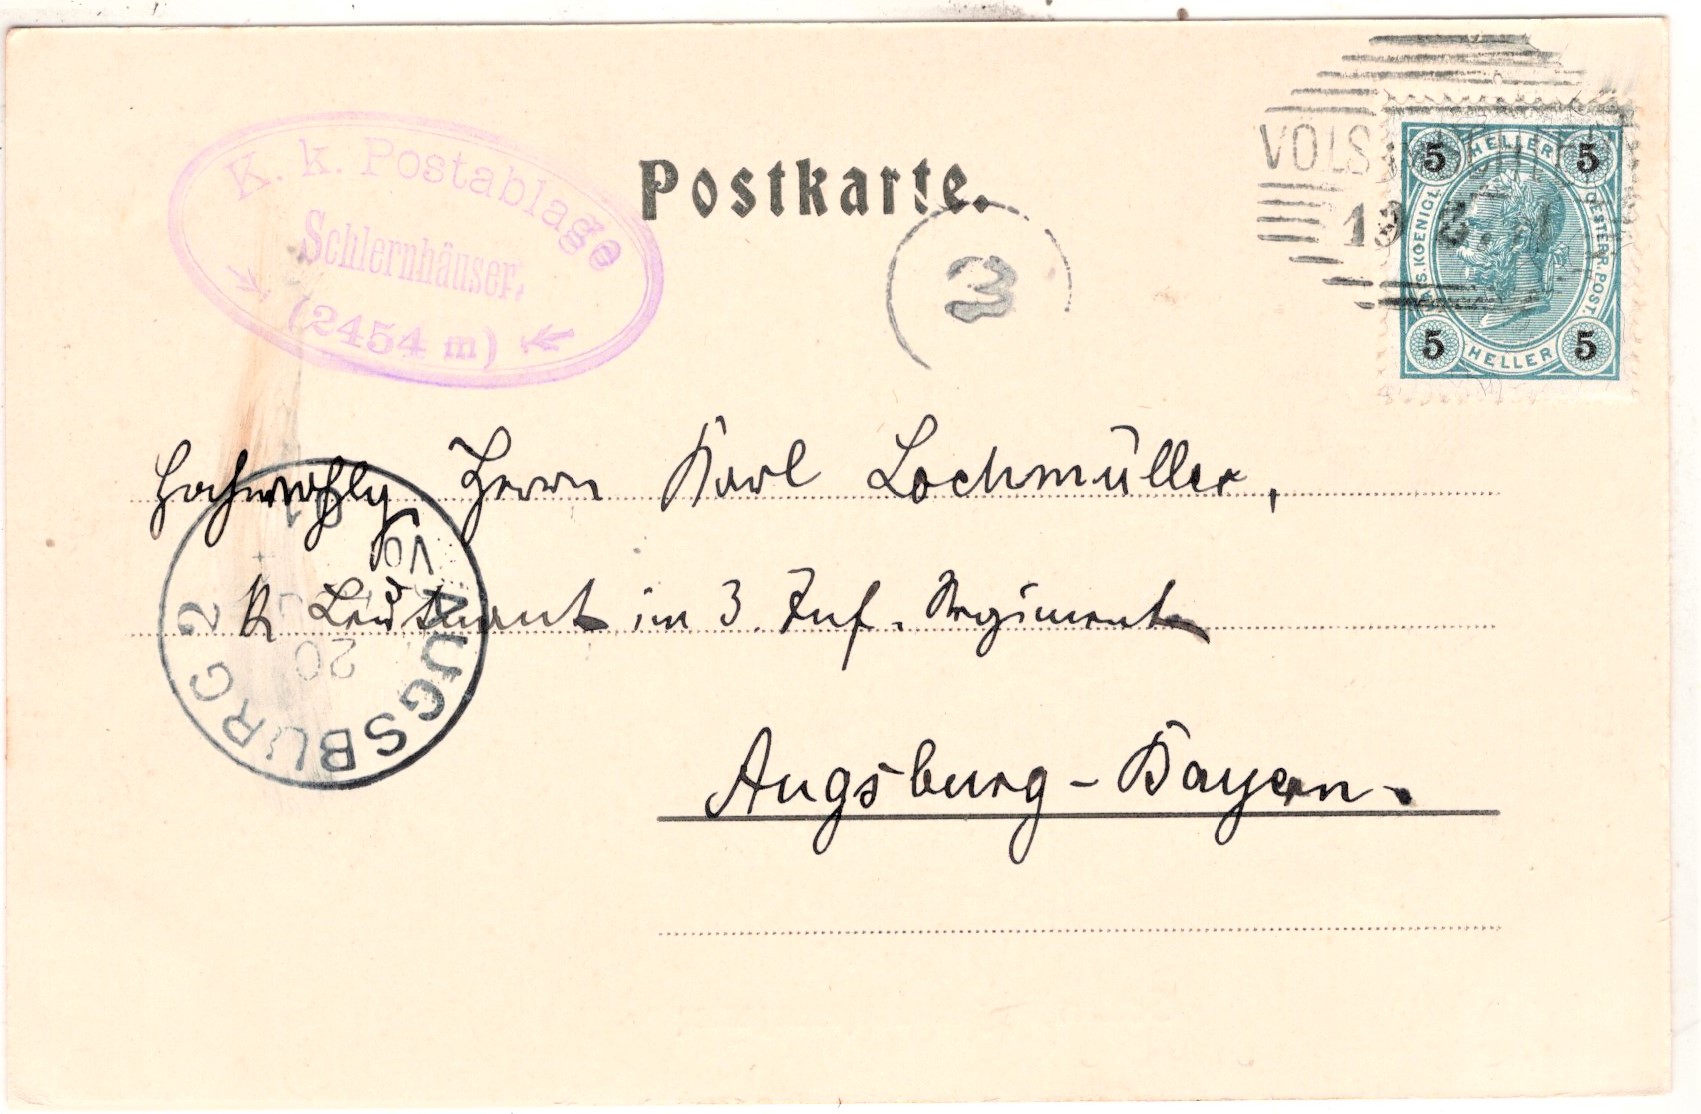 K. k. Postablage
Schlernhäuser.
(2454 m)
Postkarte.
3
VÖLS
19 8.
5 HELLER 5
KAIS. KOENIGL. OESTERR. POST.
5 HELLER 5
Hochwohlg Herrn Karl Lochmüller,
Leutnant im 3. Inf. Regiment
Augsburg - Bayern.
AUGSBURG 2
20
Vor